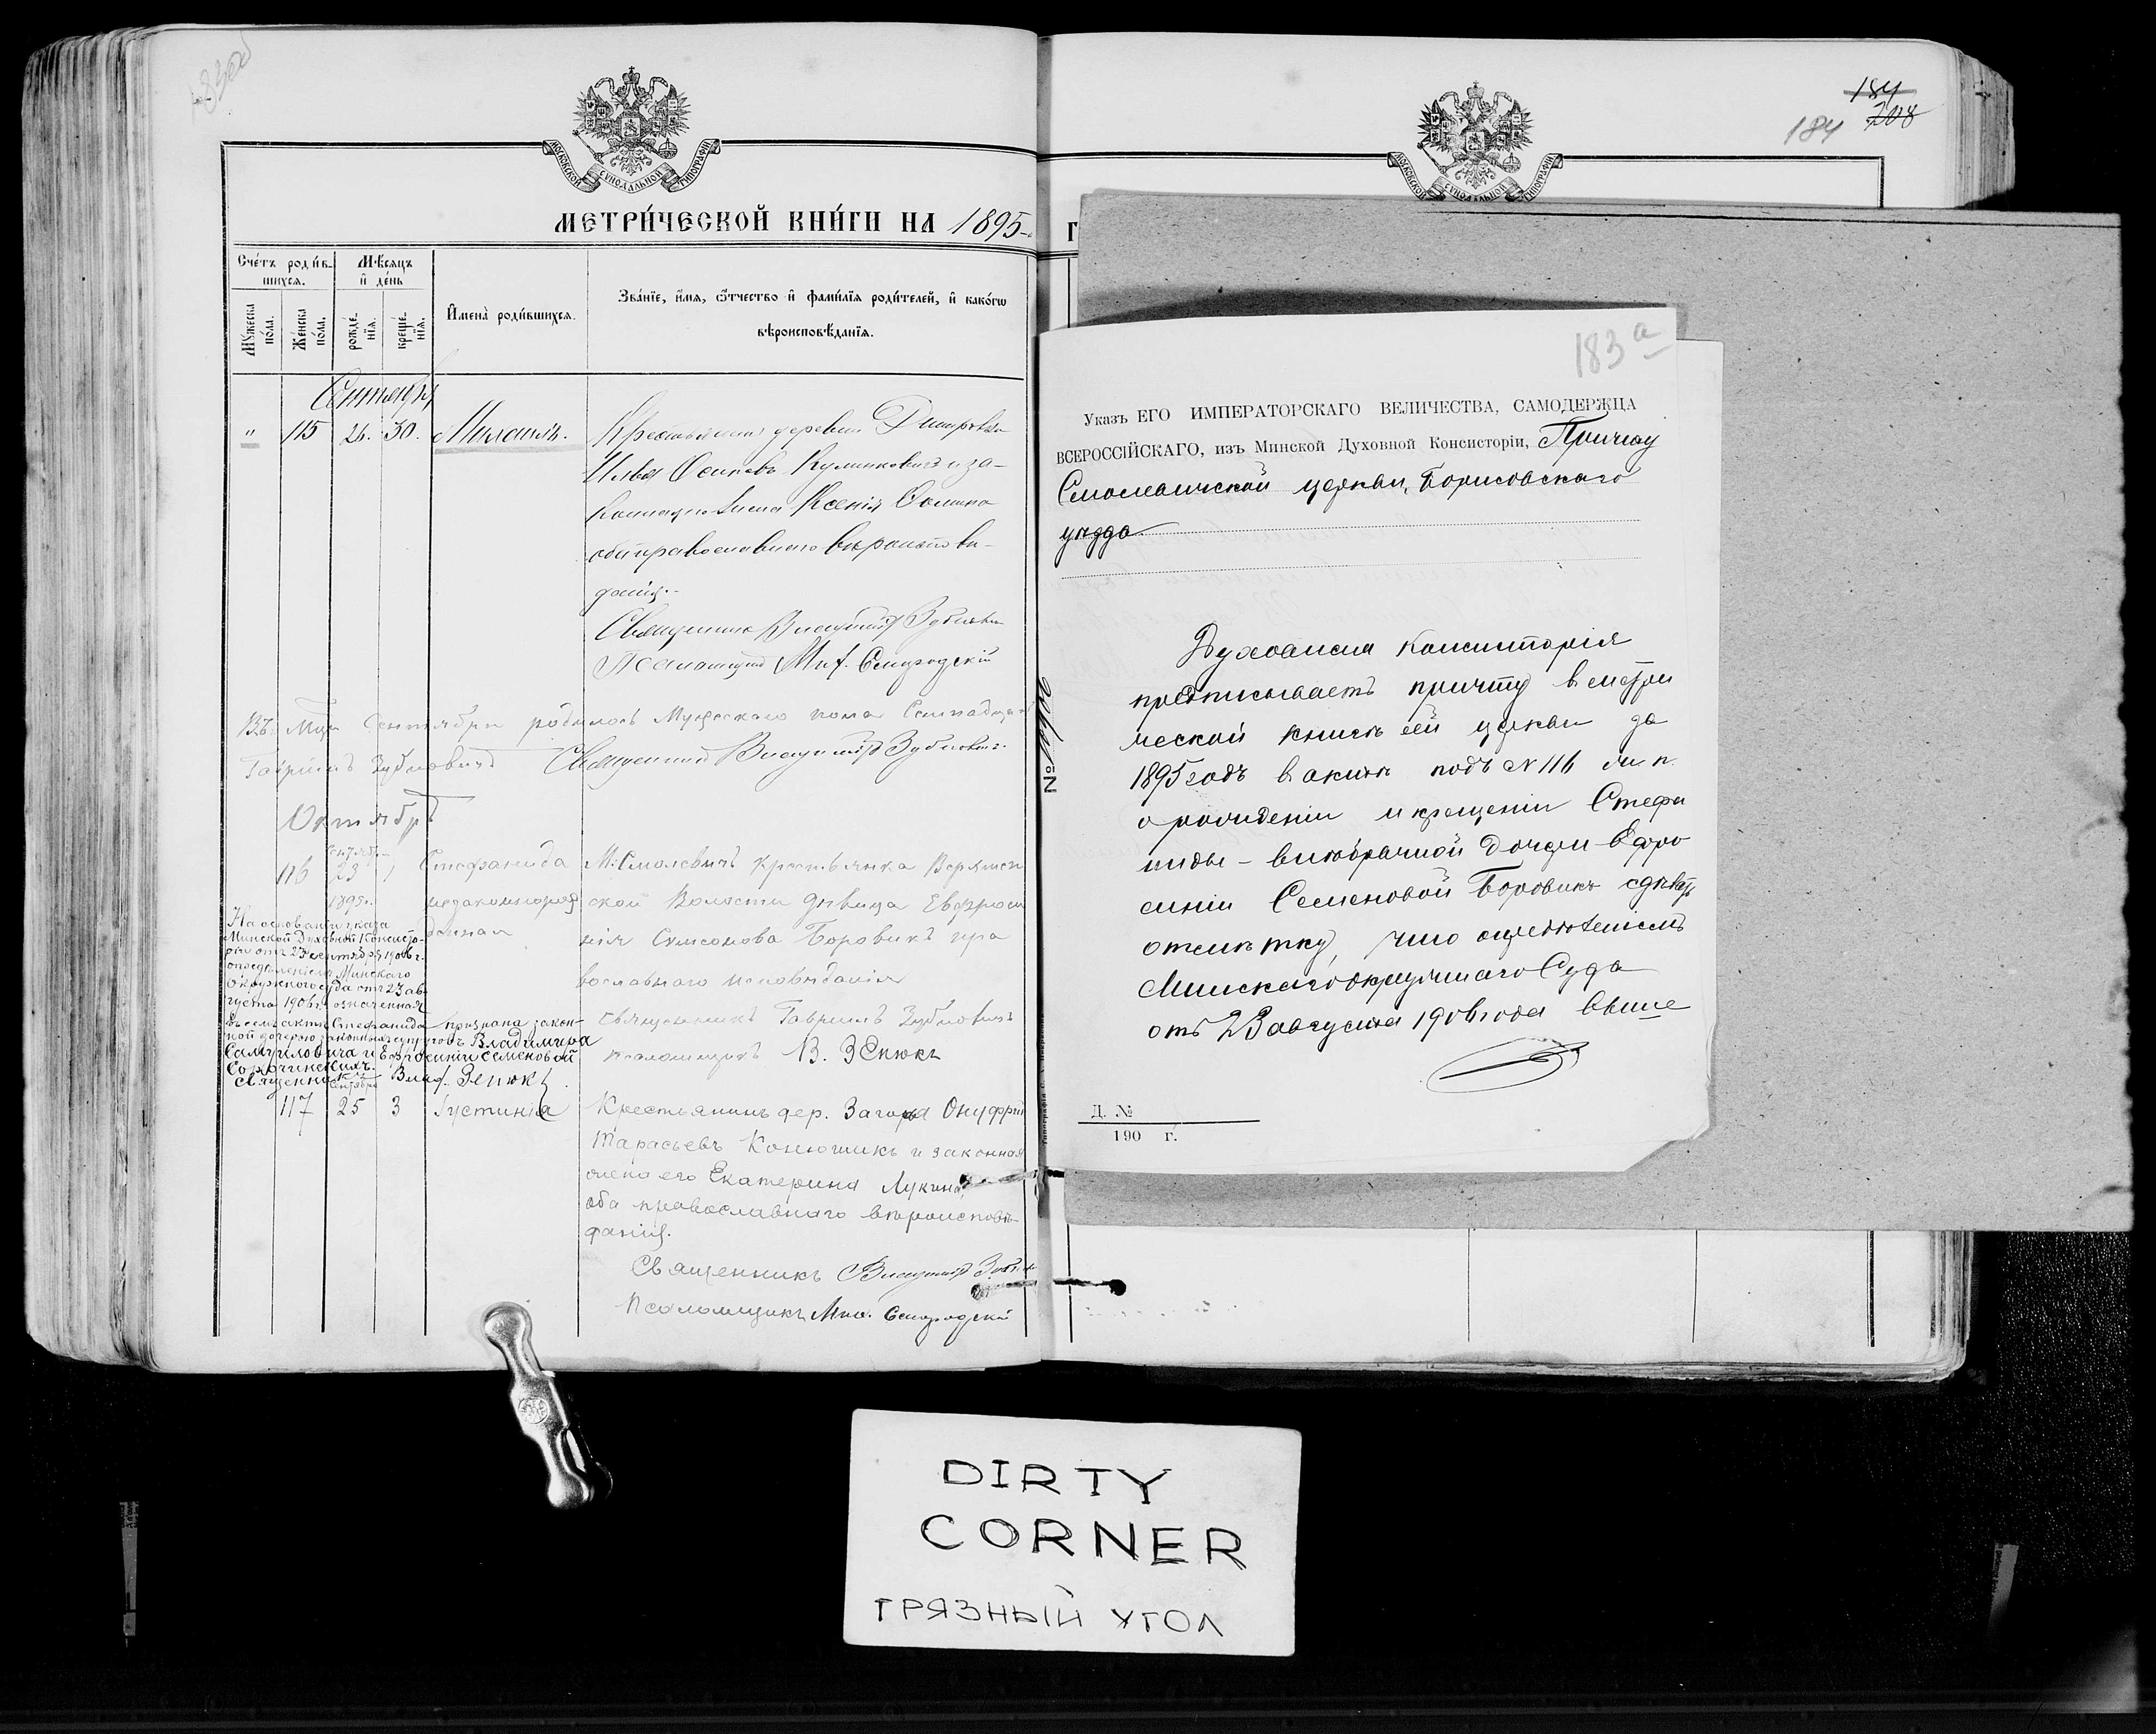 183об
МОСКОВСКОЙ СѴНОДАЛЬНОЙ ТИПОГРАФІИ
МЕТРИ́ЧЕСКОЙ КНИ́ГИ НА 1895
Сче́тъ роди́в-
шихся.
Мѣ́сяцъ
и҆ де́нь
Мꙋ́жеска
по́ла.
Же́нска
по́ла.
рожде́-
нїѧ.
креще́-
нїѧ.
И҆мена̀ роди́вшихсѧ.
Зва́нїе, и҆́мѧ, ѻ҆́тчество и҆ фами́лїѧ роди́телей, и҆ како́гѡ
вѣроисповѣ́данїѧ.
Сентябрь
" 115 26. 30.
Крестьянинъ деревни Дмитровки
Илья Осиповъ Куликовичъ и за-
конная жена Ксенія
оба православнаго вѣроисповѣ-
данія.
Священникъ Владиміръ Зубковичъ
Псаломщикъ Миѳ.
Въ Мцѣ Сентябрѣ родилось Мужескаго пола
Гавріилъ Зубковичъ Священникъ Владиміръ Зубковичъ.
Октябрь
116 Сентяб. 23 1895г. 1 Стефанида
незаконнорож
денная
М. Смолевичъ крестьянка Верхмен
ской Волости дѣвица Евфроси
нія Симеонова Боровикъ пра
вославнаго исповѣданія
Священникъ Гавріилъ Зубковичъ
псаломщикъ В. Зенюкъ
На основаніи указа
Минской Духовной Консисто-
ріи отъ 23 сентября 1906 г.
опредѣленіемъ Минскаго
Окружного суда отъ 23 ав-
густа 1906 г. означенная
въ семъ актѣ Стефанида признана закон-
ной дочерью законныхъ супруговъ Владиміра
Самуиловича и Евфросиніи Семеновой
Сорочинскихъ.
Священникъ Влад. Зенюкъ
117 Сентября 25 3 Іустинія
Крестьянинъ дер. Загорья Онуфрій
Тарасьевъ Конюшикъ и законная
жена его Екатерина Лукина,
оба православнаго вѣроисповѣ-
данія.
Священникъ Владиміръ
Псаломщикъ Миѳ.
184
208
184
МОСКОВСКОЙ СѴНОДАЛЬНОЙ ТИПОГРАФІИ
Г
183а
Указъ ЕГО ИМПЕРАТОРСКАГО ВЕЛИЧЕСТВА, САМОДЕРЖЦА
ВСЕРОССІЙСКАГО, изъ Минской Духовной Консисторіи, Причту
Смолевичской церкви, Борисовскаго
уѣзда
Духовная Консисторія
предписываетъ причту въ метри
ческой книгѣ сей церкви за
1895 годъ въ актѣ подъ № 116 ж. п.
о рожденіи и крещеніи Стефа
ниды – внѣбрачной дочери Ефро
синіи Семеновой Боровикъ сдѣлать
отмѣтку, что опредѣленіемъ
Минскаго Окружнаго Суда
отъ 23 августа 1906 года выше
№
Д. №
190 г.
DIRTY
CORNER
ГРЯЗНЫЙ УГОЛ